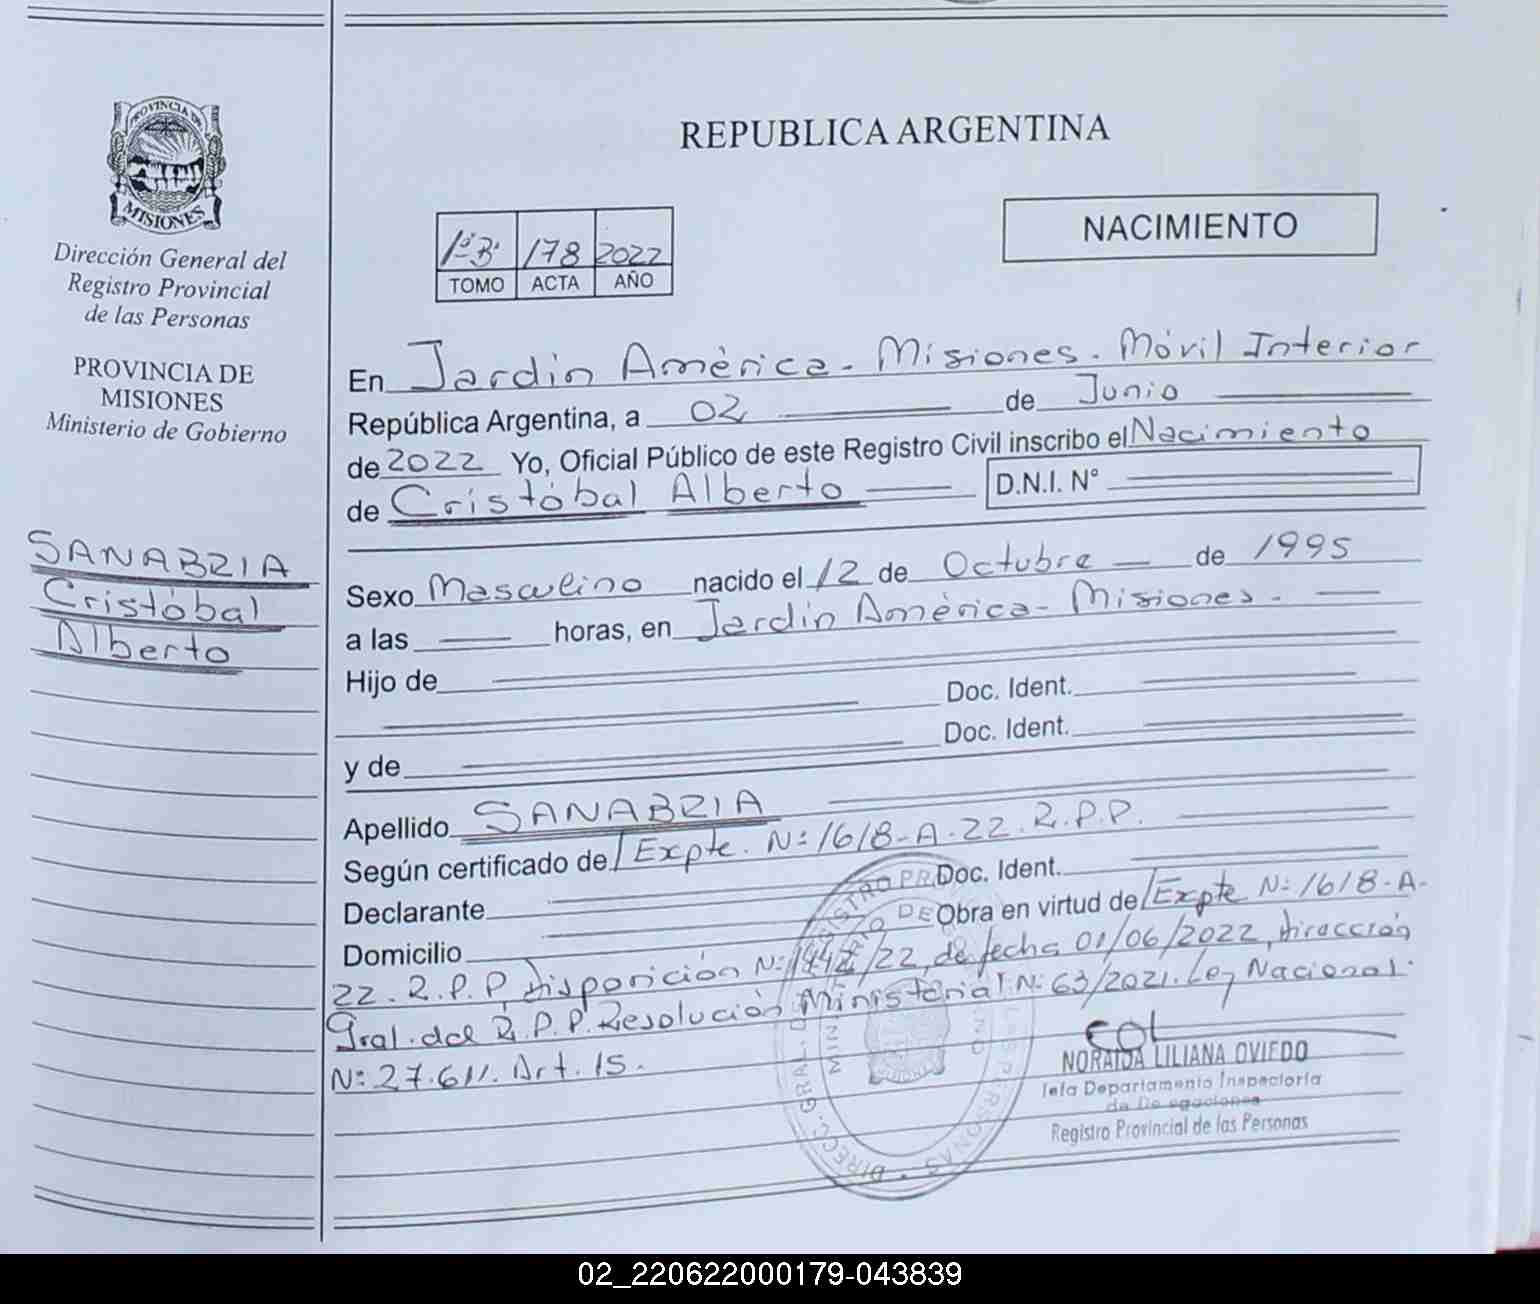 PROVINCIA DE
MISIONES
Dirección General del
Registro Provincial
de las Personas
PROVINCIA DE
MISIONES
Ministerio de Gobierno
SANABRIA
Cristóbal
Alberto
REPUBLICA ARGENTINA
1º B' 178 2022
TOMO ACTA AÑO
NACIMIENTO
En Jardín América - Misiones. Móvil Interior
República Argentina, a 02 de Junio
de 2022 Yo, Oficial Público de este Registro Civil inscribo el Nacimiento
de Cristóbal Alberto D.N.I. N°
Sexo Masculino nacido el 12 de Octubre de 1995
a las horas, en Jardín América - Misiones.
Hijo de
Doc. Ident.
Doc. Ident.
y de
Apellido SANABRIA
Según certificado de Expte. Nº 1618-A-22. R.P.P.
Declarante Doc. Ident.
Domicilio Obra en virtud de Expte Nº 1618-A-
22. R.P.P, Disposición Nº /22, de fecha 01/06/2022, Dirección
Gral. del R.P.P. Resolución Ministerial Nº 63/2021. Ley Nacional
Nº 27.611. Art. 15.
NORAIDA LILIANA OVIEDO
Jefa Departamento Inspectoría
de Delegaciones
Registro Provincial de las Personas
02_220622000179-043839